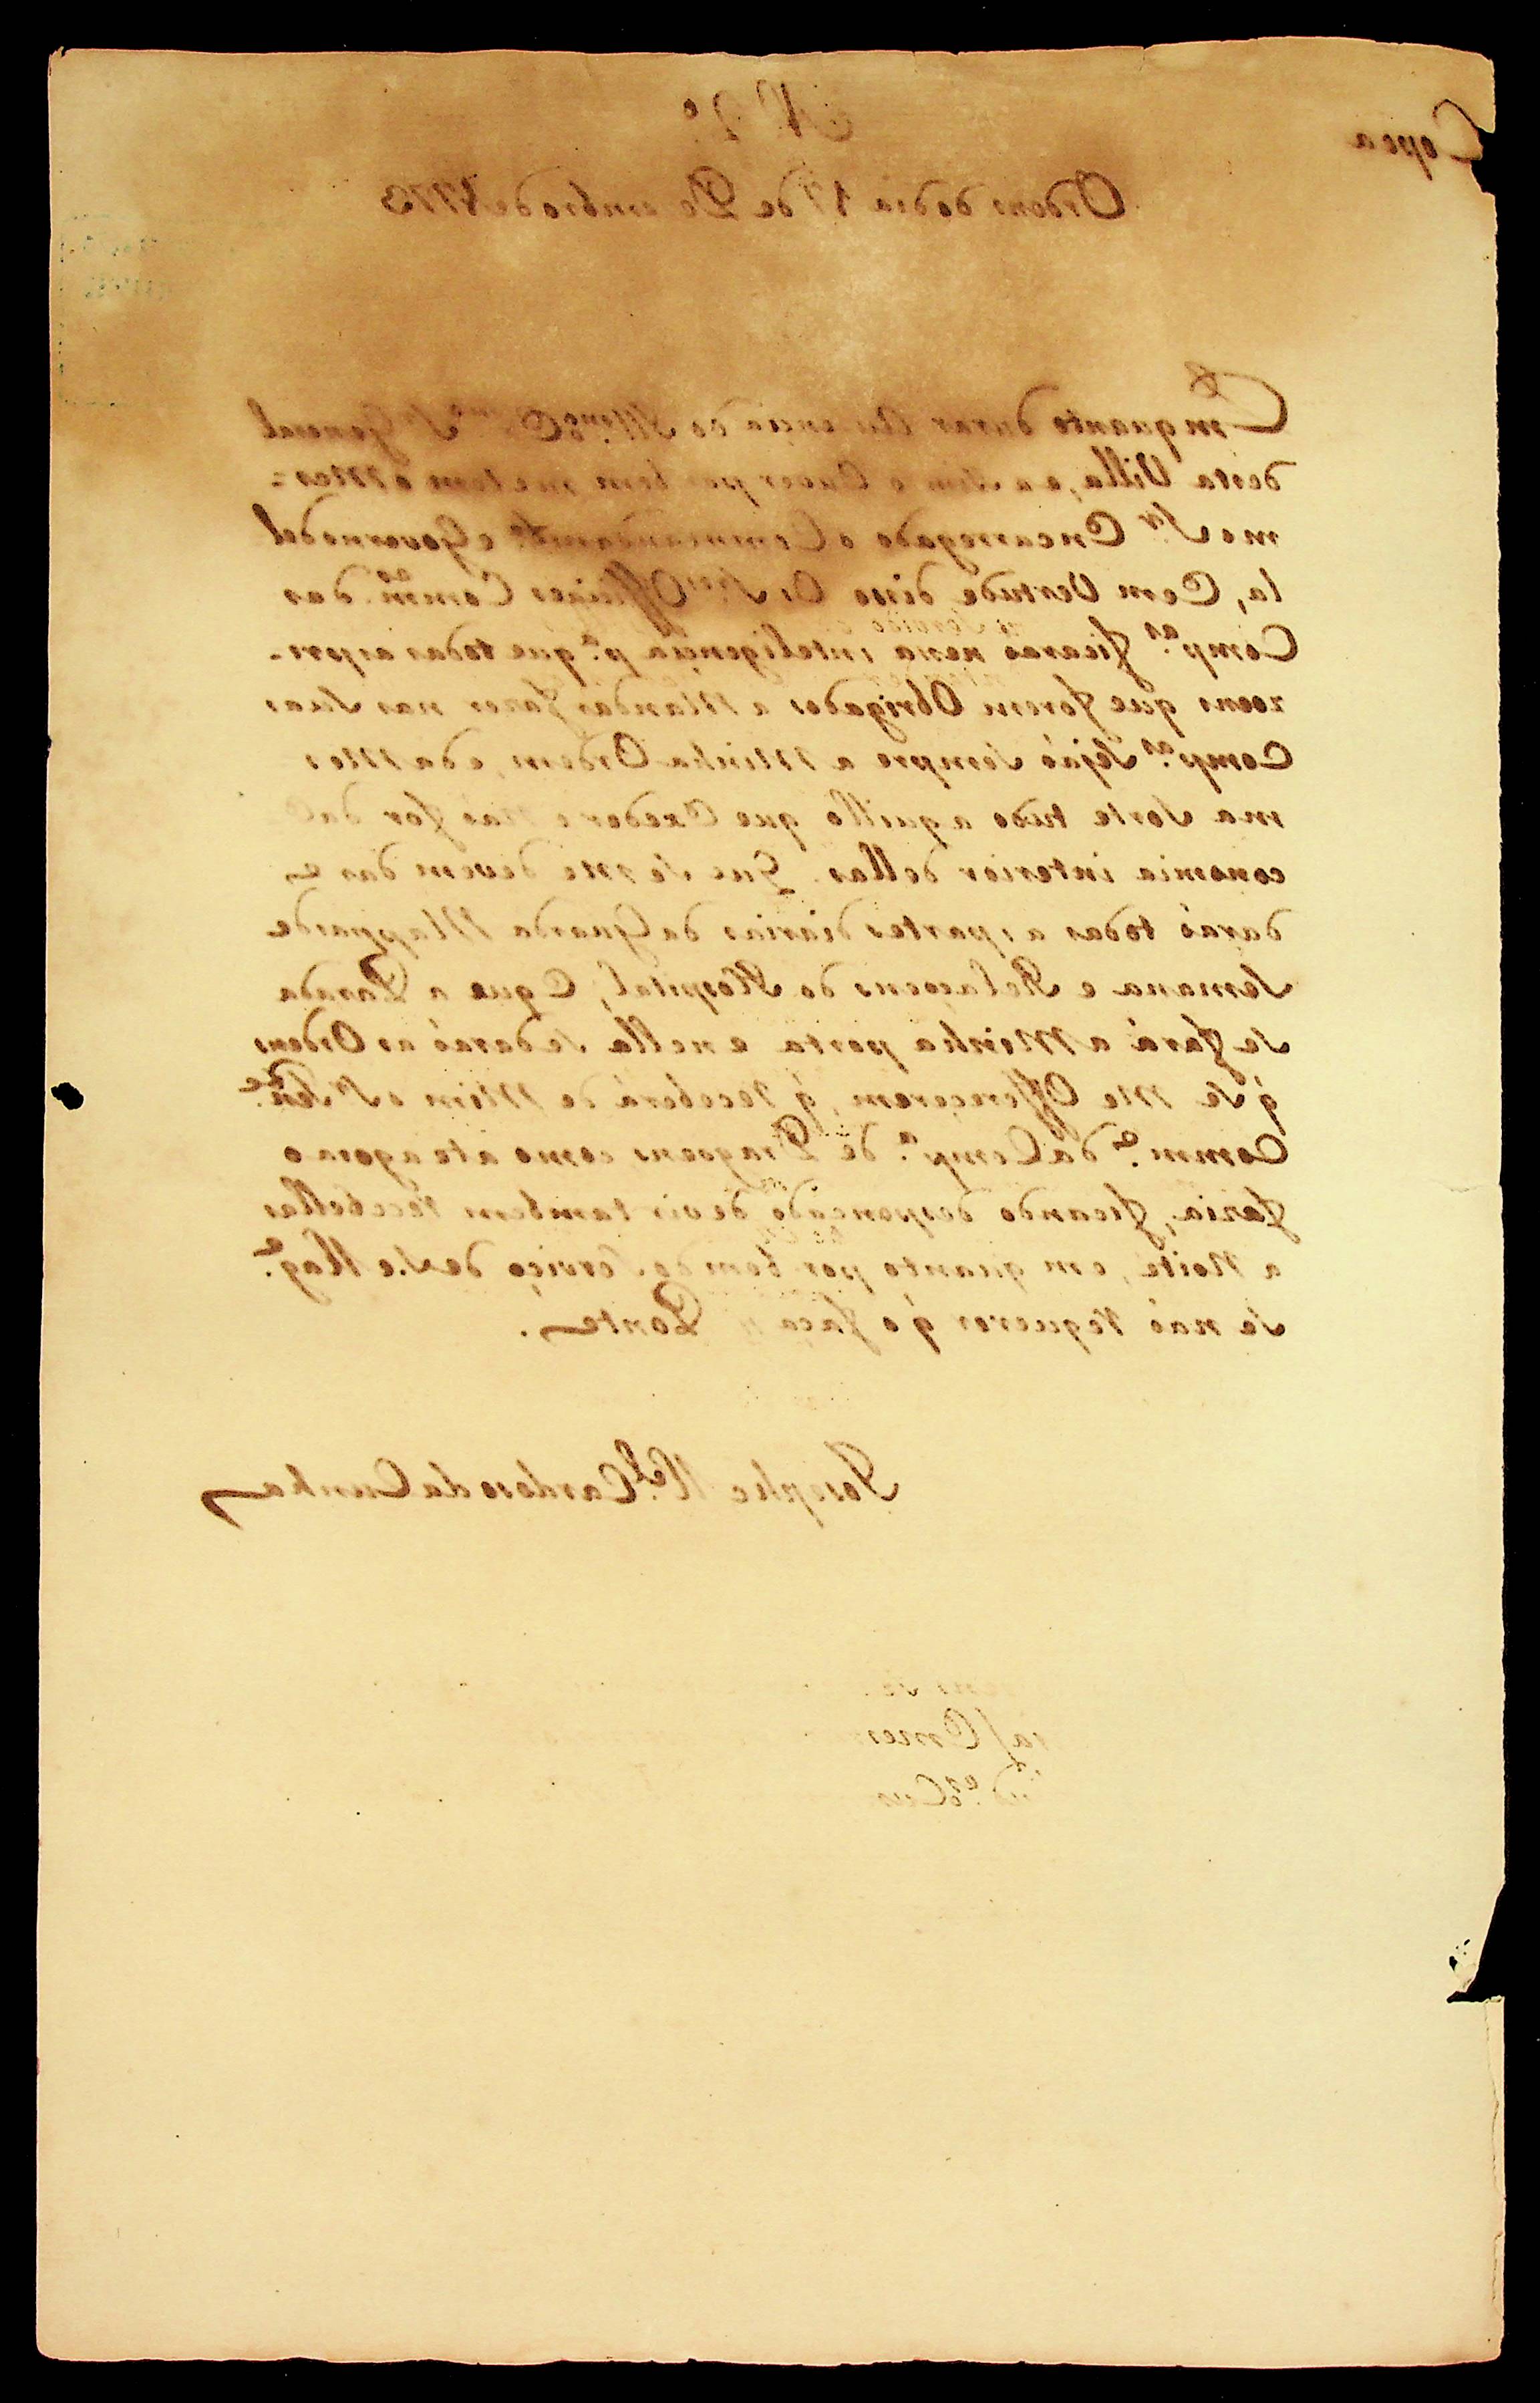 Copea
N 2º
Ordens do dia 17 de Dezembro de 1773
Emquanto durar Auzençia do Illmº e Exmº Sr General
desta Villa, e a Mim o Ouver por bem que tem o Mes-
mo Sr. Encarregado o Commandamtº e Governo del
la, E em Vertude disso Os Sres Offiçiaes Commes das
Compas ficaraõ nesta inteligençia pª que todas as pri-
zoens que forem Obrigados a Mandar fazer nas suas
Compas Sejaõ Sempre a Minha Ordem, e da Mes
ma Sorte tudo aquillo que Exeder e Naõ for da E
conomia interior dellas. Que Se me devem dar e
daraõ todas as partes diarias da Guarda Mappas de
Semana e Relaçoens do Hospital; E que a Parada
Se fará a Minha porta e nella Se daraõ as Ordens
q̃ Se Me Offereçerem, q̃ reçeberá de Mim o Sr Tene
Comme da Compª de Dragoens como ate agora o
fazia, ficando despençado de vir tambem recebellas
a Noite, em quanto por bem do Serviço de S. Mage
Se naõ requerer q̃ o faça Ponte.
Josephe Mel Cardoso da Cunha